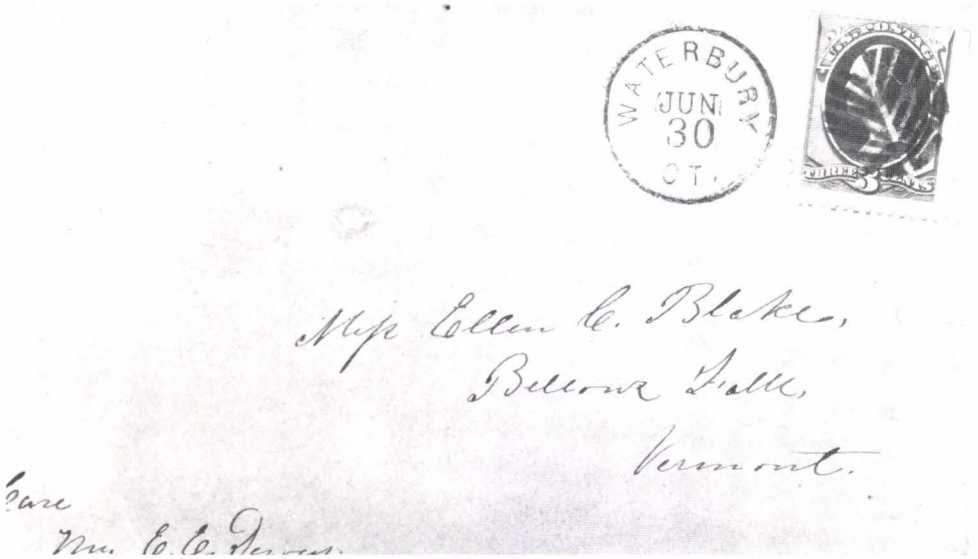 WATERBURY
JUN
30
CT.
U.S. POSTAGE
THREE 3 CENTS
Miss Ellen C. Blake,
Bellows Falls,
Vermont.
Care
E. E.